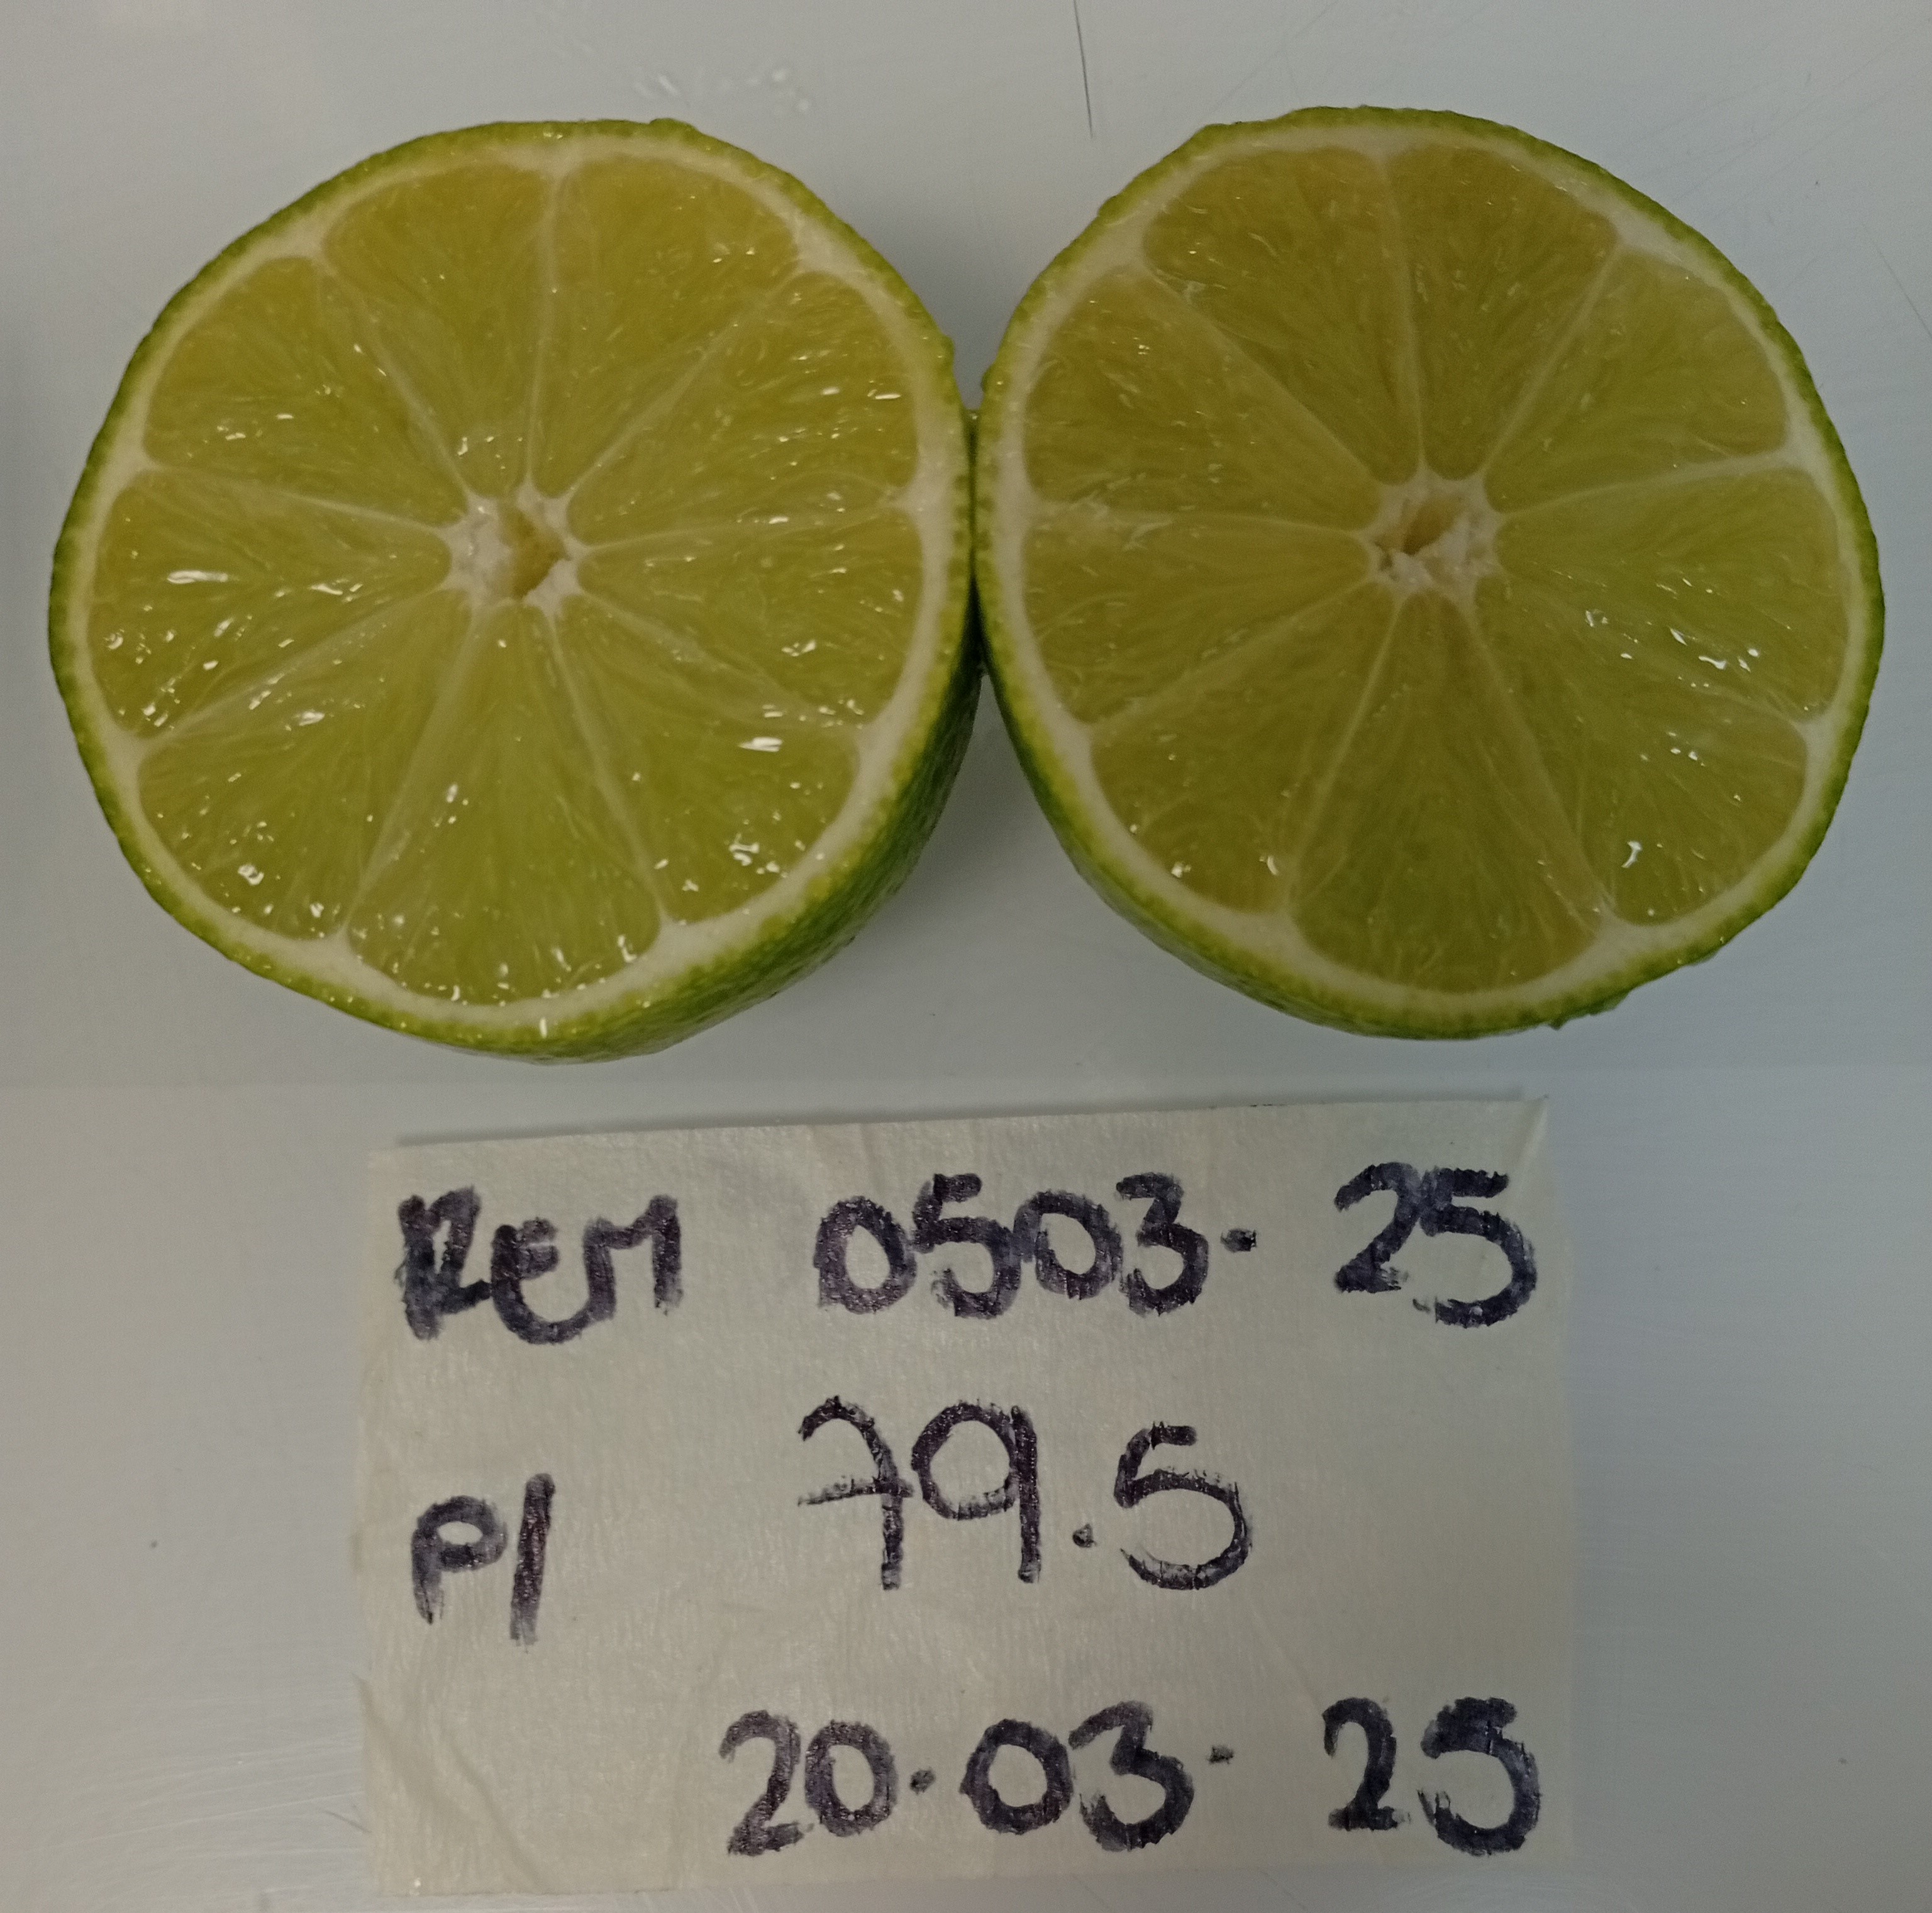 REM 0503-25
P/ 79.5
20-03-25